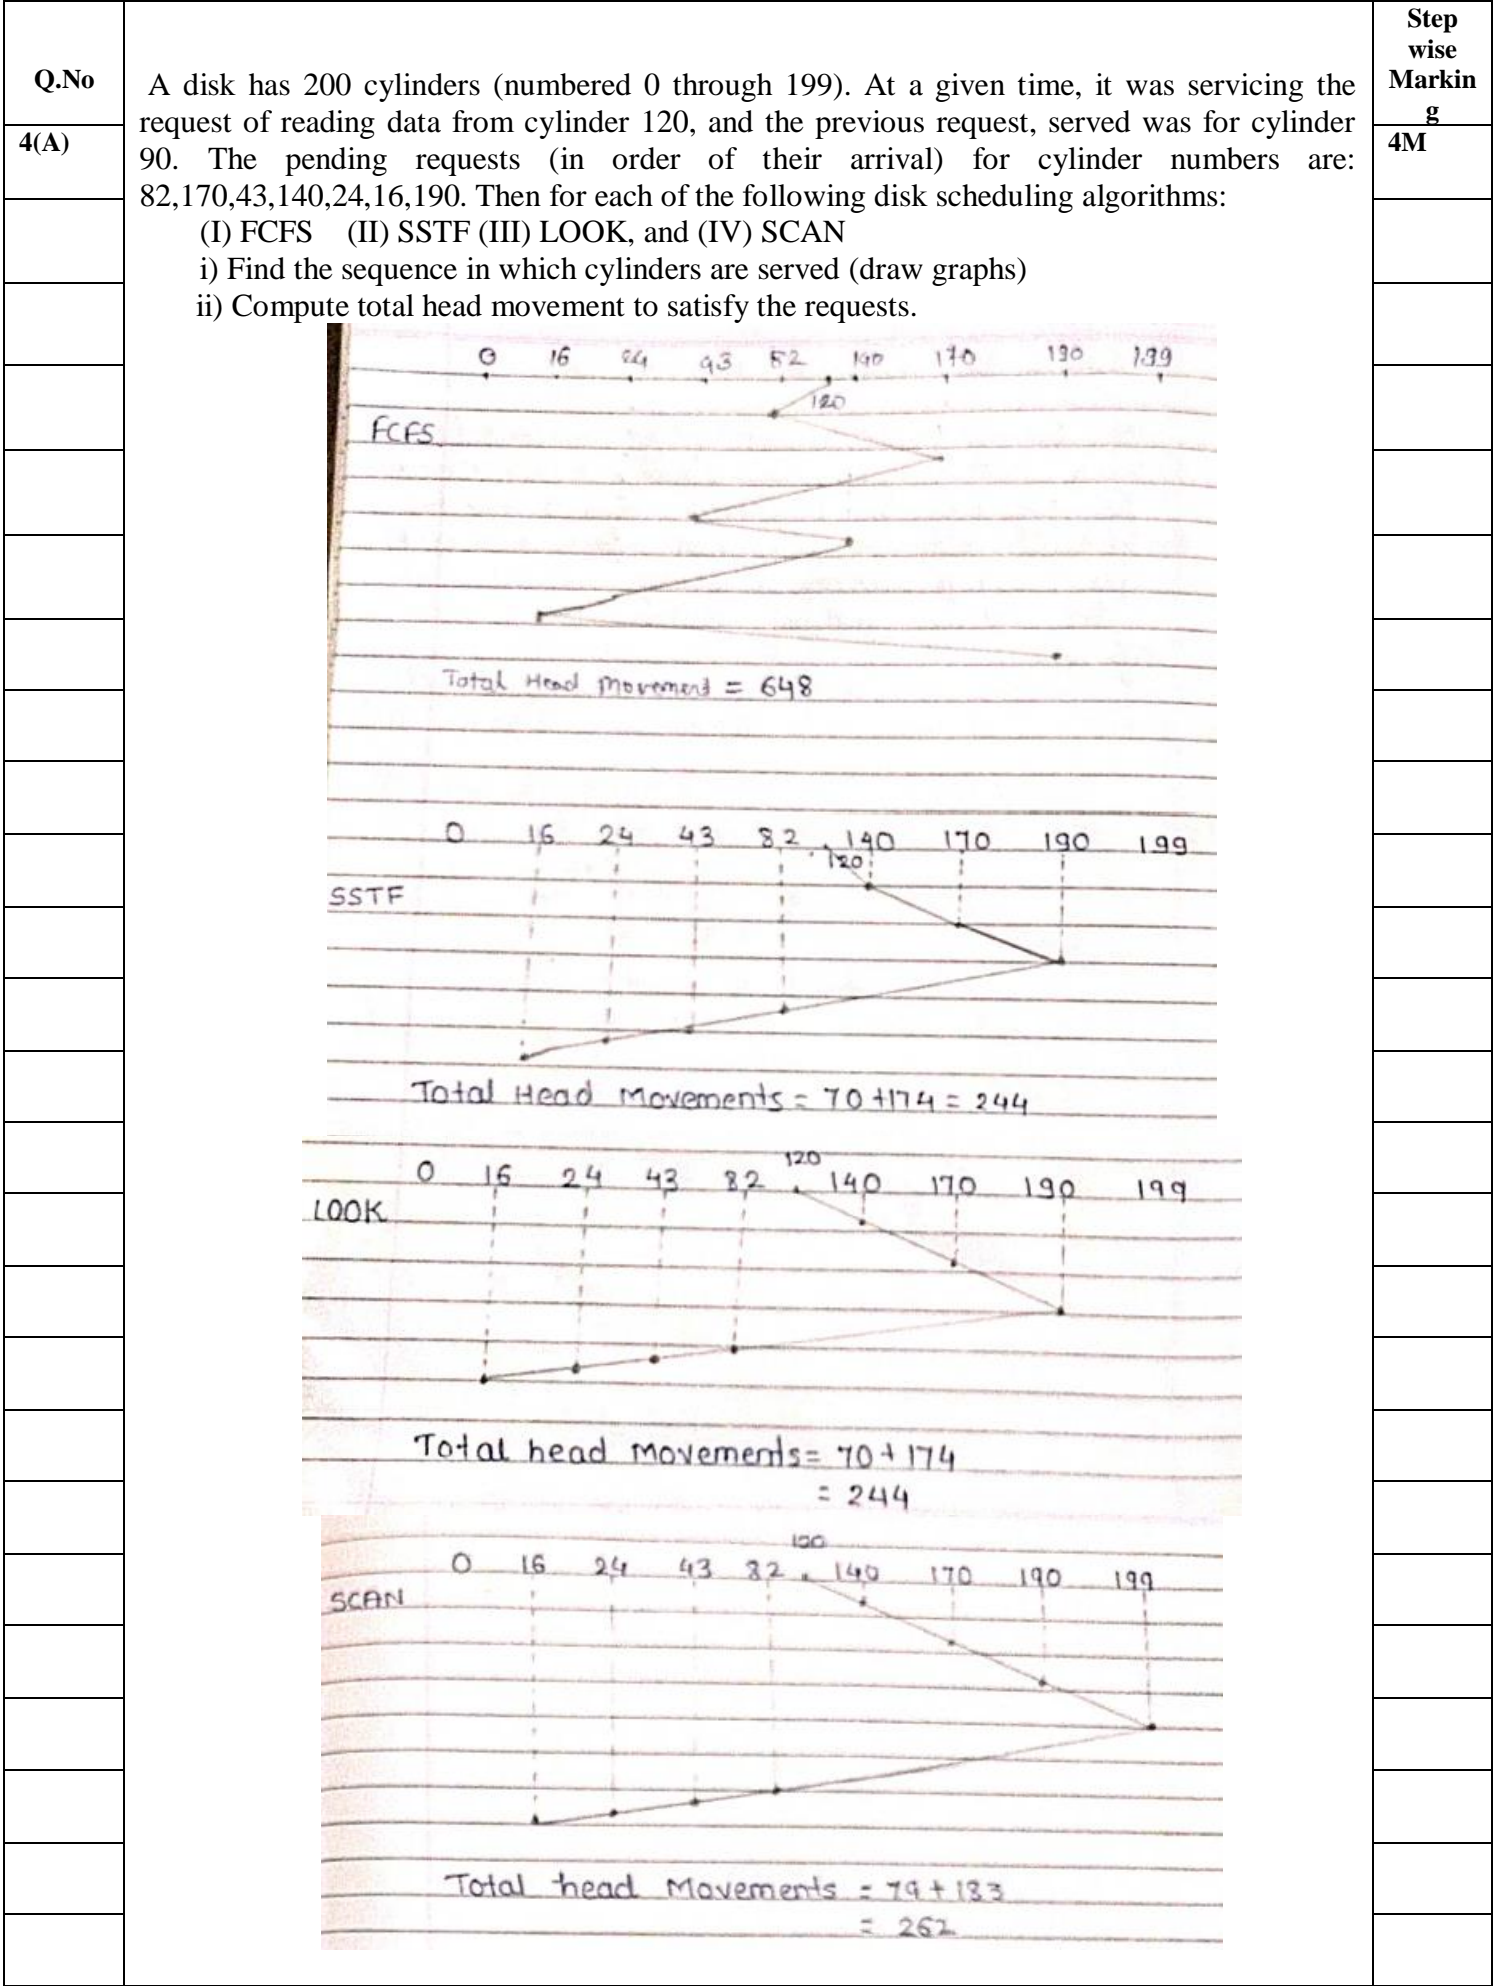 Q.No
Step
wise
Markin
g
4(A)
4M
A disk has 200 cylinders (numbered 0 through 199). At a given time, it was servicing the
request of reading data from cylinder 120, and the previous request, served was for cylinder
90. The pending requests (in order of their arrival) for cylinder numbers are:
82,170,43,140,24,16,190. Then for each of the following disk scheduling algorithms:
(I) FCFS (II) SSTF (III) LOOK, and (IV) SCAN
i) Find the sequence in which cylinders are served (draw graphs)
ii) Compute total head movement to satisfy the requests.
0 16 24 43 82 140 170 190 199
120
FCFS
Total Head Movement = 648
0 16 24 43 82 140 170 190 199
120
SSTF
Total Head Movements = 70 + 174 = 244
120
0 16 24 43 82 140 170 190 199
LOOK
Total head Movements = 70 + 174
= 244
120
0 16 24 43 82 140 170 190 199
SCAN
Total head Movements = 79 + 183
= 262